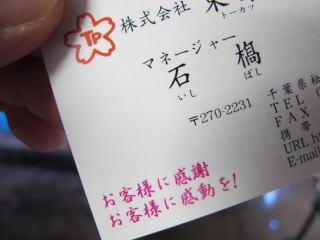 TP
株式会社 東
トーカツ
マネージャー
石
いし ばし
〒270-2231
千葉県松
TEL
FAX
携帯
URL h
E-mai
お客様に感謝
お客様に感動を!